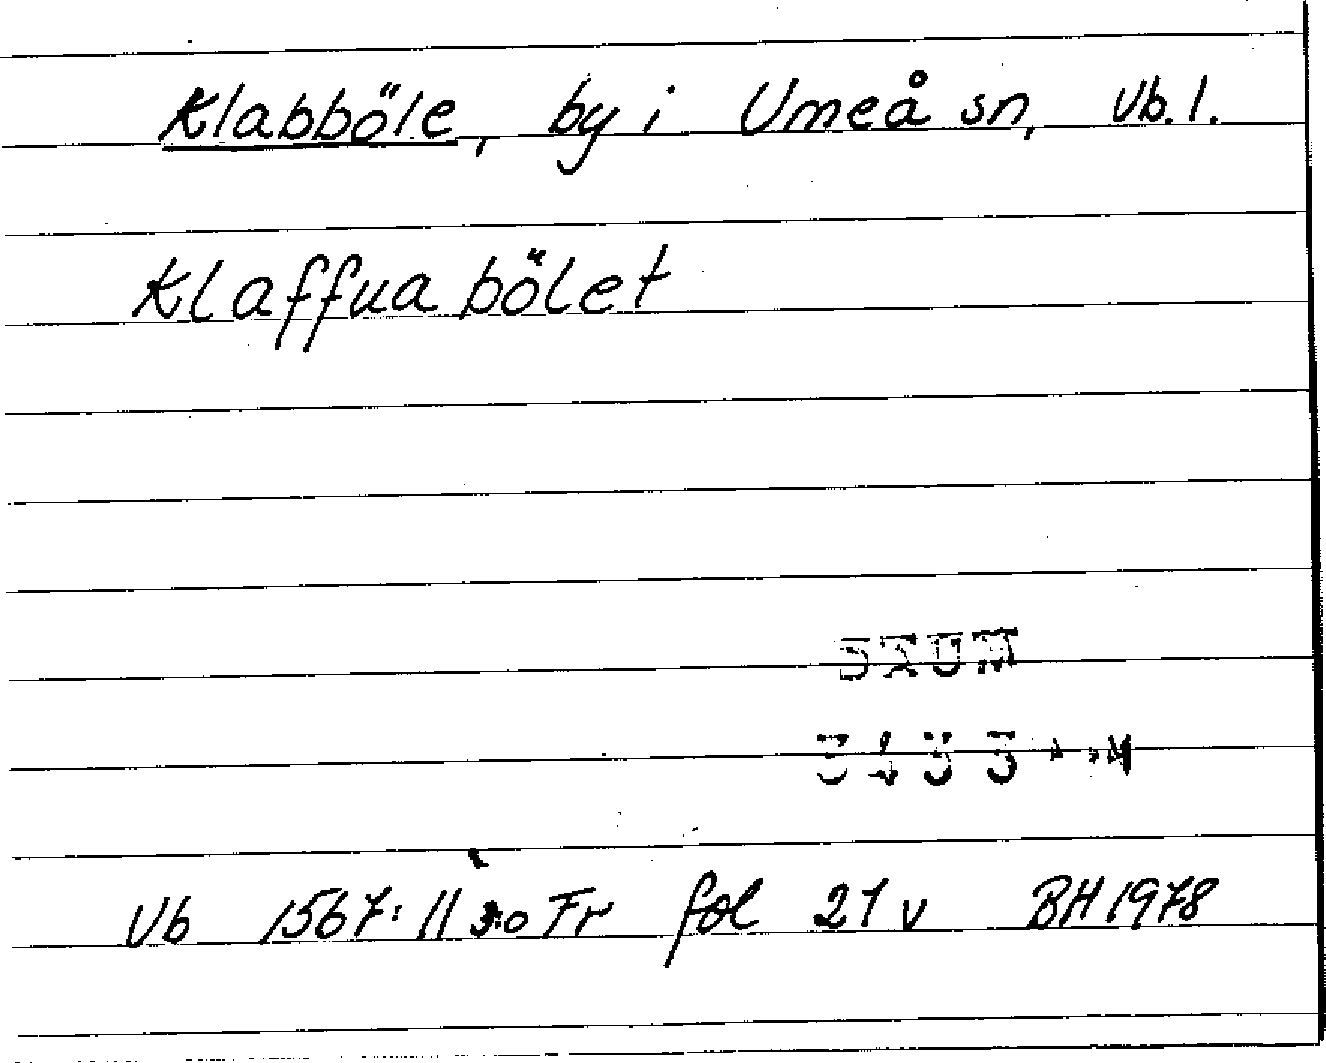 Klabböle, by i Umeå sn, Vb. l.
Klaffua bölet
Vb 1567:11 Fr fol 21 v BH 1978